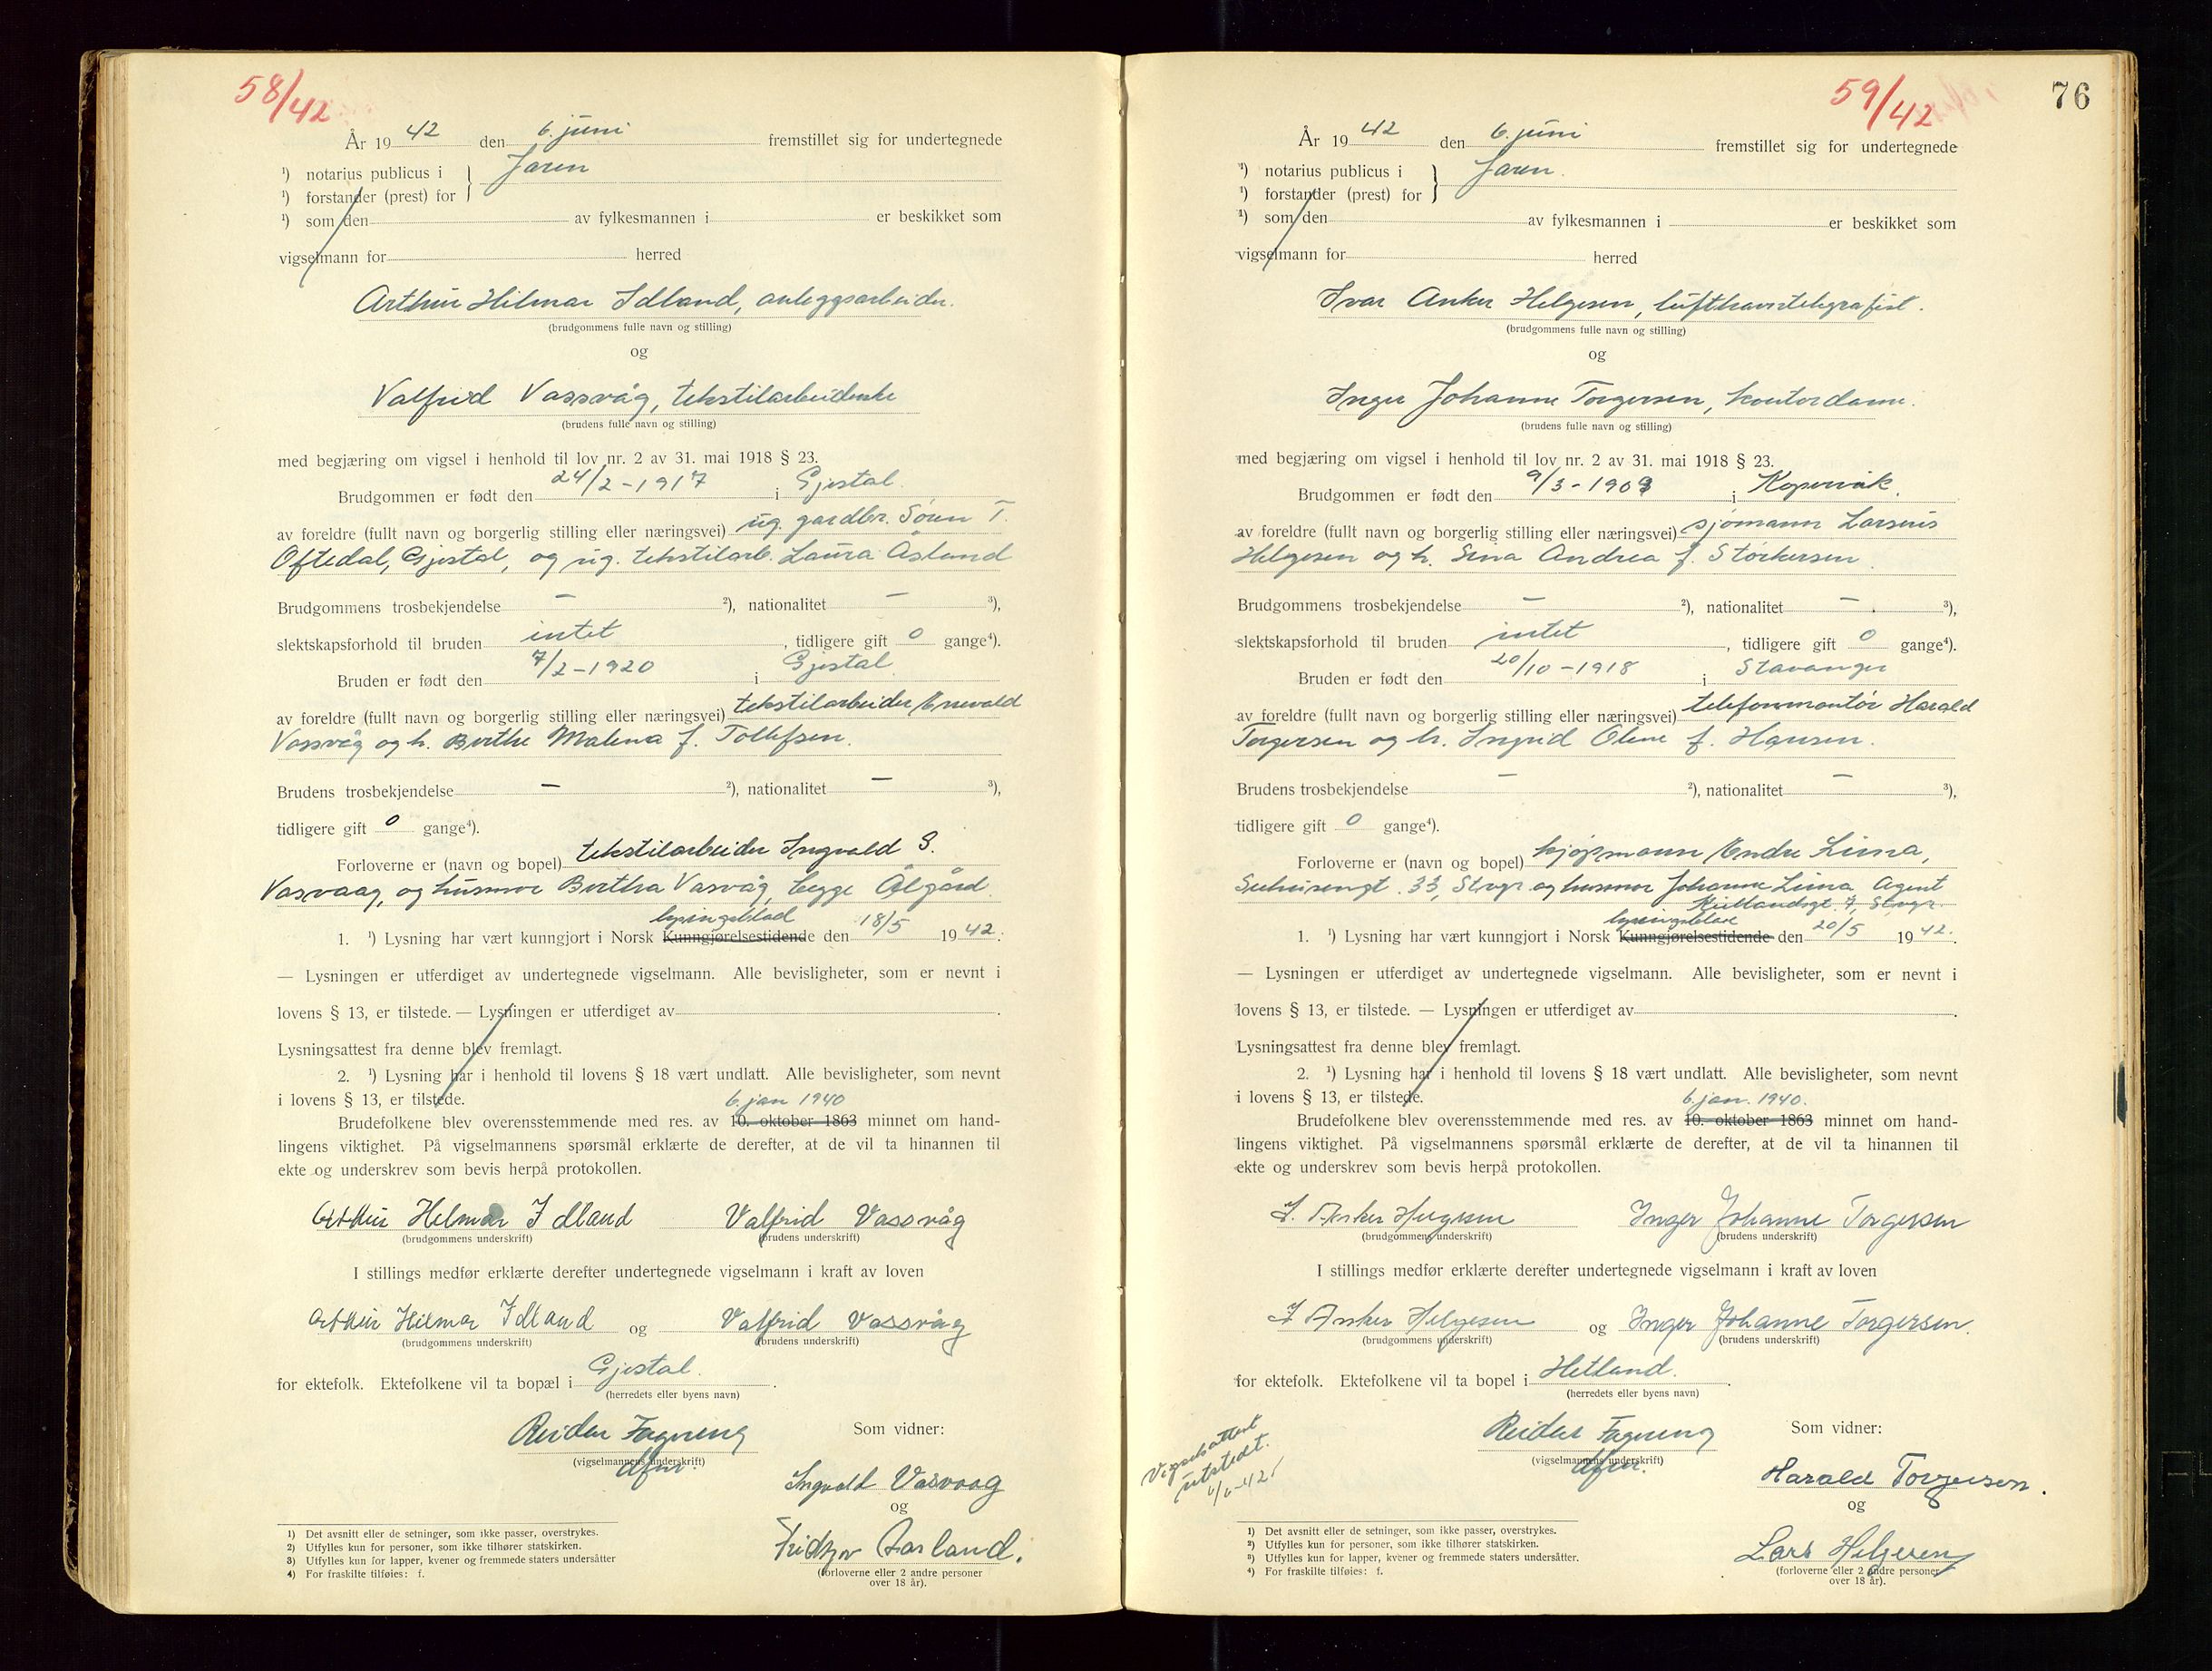 58/42
År 1942 den 6. juni fremstillet sig for undertegnede
¹) notarius publicus i } Jæren
¹) forstander (prest) for
¹) som den av fylkesmannen i er beskikket som
vigselmann for herred
Arthur Hilmar Idland, anleggsarbeider.
(brudgommens fulle navn og stilling)
og
Valfrid Vassvåg, tekstilarbeiderske
(brudens fulle navn og stilling)
med begjæring om vigsel i henhold til lov nr. 2 av 31. mai 1918 § 23.
Brudgommen er født den 24/2-1917 i Gjestal.
av foreldre (fullt navn og borgerlig stilling eller næringsvei) ug. gardbr. Sören T.
Oftedal, Gjestal, og ug. tekstilarb. Laura Åsland
Brudgommens trosbekjendelse — ²), nationalitet — ³),
slektskapsforhold til bruden intet, tidligere gift 0 gange⁴).
Bruden er født den 7/2-1920 i Gjestal
av foreldre (fullt navn og borgerlig stilling eller næringsvei) tekstilarbeider Enevald
Vassvåg og h. Berthe Malena f. Tollefsen.
Brudens trosbekjendelse — ²), nationalitet — ³),
tidligere gift 0 gange⁴).
Forloverne er (navn og bopel) tekstilarbeider Ingvald S.
Vasvaag, og husmor Bertha Vasvåg, begge Ålgård.
lysingsblad
1. ¹) Lysning har vært kunngjort i Norsk Kunngjørelsestidende den 18/5 1942.
— Lysningen er utferdiget av undertegnede vigselmann. Alle bevisligheter, som er nevnt i
lovens § 13, er tilstede. — Lysningen er utferdiget av
Lysningsattest fra denne blev fremlagt.
2. ¹) Lysning har i henhold til lovens § 18 vært undlatt. Alle bevisligheter, som nevnt
i lovens § 13, er tilstede. 6. jan 1940
Brudefolkene blev overensstemmende med res. av 10. oktober 1863 minnet om hand-
lingens viktighet. På vigselmannens spørsmål erklærte de derefter, at de vil ta hinannen til
ekte og underskrev som bevis herpå protokollen.
Arthur Hilmar Idland Valfrid Vassvåg
(brudgommens underskrift) (brudens underskrift)
I stillings medfør erklærte derefter undertegnede vigselmann i kraft av loven
Arthur Hilmar Idland og Valfrid Vassvåg
(brudgommens underskrift) (brudens underskrift)
for ektefolk. Ektefolkene vil ta bopæl i Gjestal.
(herredets eller byens navn)
Reidar Fagereng Som vidner:
(vigselmannens underskrift)
dfm.
Ingvald Vasvaag
og
Fridtjov Aarland.
(forloverne eller 2 andre personer
over 18 år).
1) Det avsnitt eller de setninger, som ikke passer, overstrykes.
2) Utfylles kun for personer, som ikke tilhører statskirken.
3) Utfylles kun for lapper, kvener og fremmede staters undersåtter
4) For fraskilte tilføies: f.
59/42
76
År 1942 den 6. juni fremstillet sig for undertegnede
¹) notarius publicus i } Jæren.
¹) forstander (prest) for
¹) som den av fylkesmannen i er beskikket som
vigselmann for herred
Ivar Anker Helgesen, lufthavntelegrafist.
(brudgommens fulle navn og stilling)
og
Inger Johanne Torgersen, kontordame.
(brudens fulle navn og stilling)
med begjæring om vigsel i henhold til lov nr. 2 av 31. mai 1918 § 23.
Brudgommen er født den 9/3-1909 i Kopervik.
av foreldre (fullt navn og borgerlig stilling eller næringsvei) sjømann Larsius
Helgesen og h. Sina Andrea f. Störkersen.
Brudgommens trosbekjendelse — ²), nationalitet — ³),
slektskapsforhold til bruden intet, tidligere gift 0 gange⁴).
Bruden er født den 20/10-1918 i Stavanger
av foreldre (fullt navn og borgerlig stilling eller næringsvei) telefonmontör Harald
Torgersen og h. Ingrid Olene f. Hansen.
Brudens trosbekjendelse — ²), nationalitet — ³),
tidligere gift 0 gange⁴).
Forloverne er (navn og bopel) kjöpmann Endre Lima,
33, Stvgr. og husmor Johanne Lima Agent
Kiellandsgt. 7, Stvgr.
1. ¹) Lysning har vært kunngjort i Norsk Kunngjørelsestidende den 20/5 1942.
— Lysningen er utferdiget av undertegnede vigselmann. Alle bevisligheter, som er nevnt i
lovens § 13, er tilstede. — Lysningen er utferdiget av
Lysningsattest fra denne blev fremlagt.
2. ¹) Lysning har i henhold til lovens § 18 vært undlatt. Alle bevisligheter, som nevnt
i lovens § 13, er tilstede. 6. jan. 1940.
Brudefolkene blev overensstemmende med res. av 10. oktober 1863 minnet om hand-
lingens viktighet. På vigselmannens spørsmål erklærte de derefter, at de vil ta hinannen til
ekte og underskrev som bevis herpå protokollen.
I. Anker Helgesen Inger Johanne Torgersen
(brudgommens underskrift) (brudens underskrift)
I stillings medfør erklærte derefter undertegnede vigselmann i kraft av loven
I Anker Helgesen og Inger Johanne Torgersen.
(brudgommens underskrift) (brudens underskrift)
for ektefolk. Ektefolkene vil ta bopel i Hetland.
(herredets eller byens navn)
Vigselsattest
utstedt.
6/6-42
Reidar Fagereng Som vidner:
(vigselmannens underskrift)
dfm.
Harald Torgersen.
og
Lars Helgesen
(forloverne eller 2 andre personer
over 18 år).
1) Det avsnitt eller de setninger, som ikke passer, overstrykes.
2) Utfylles kun for personer, som ikke tilhører statskirken.
3) Utfylles kun for lapper, kvener og fremmede staters undersåtter.
4) For fraskilte tilføies: f.